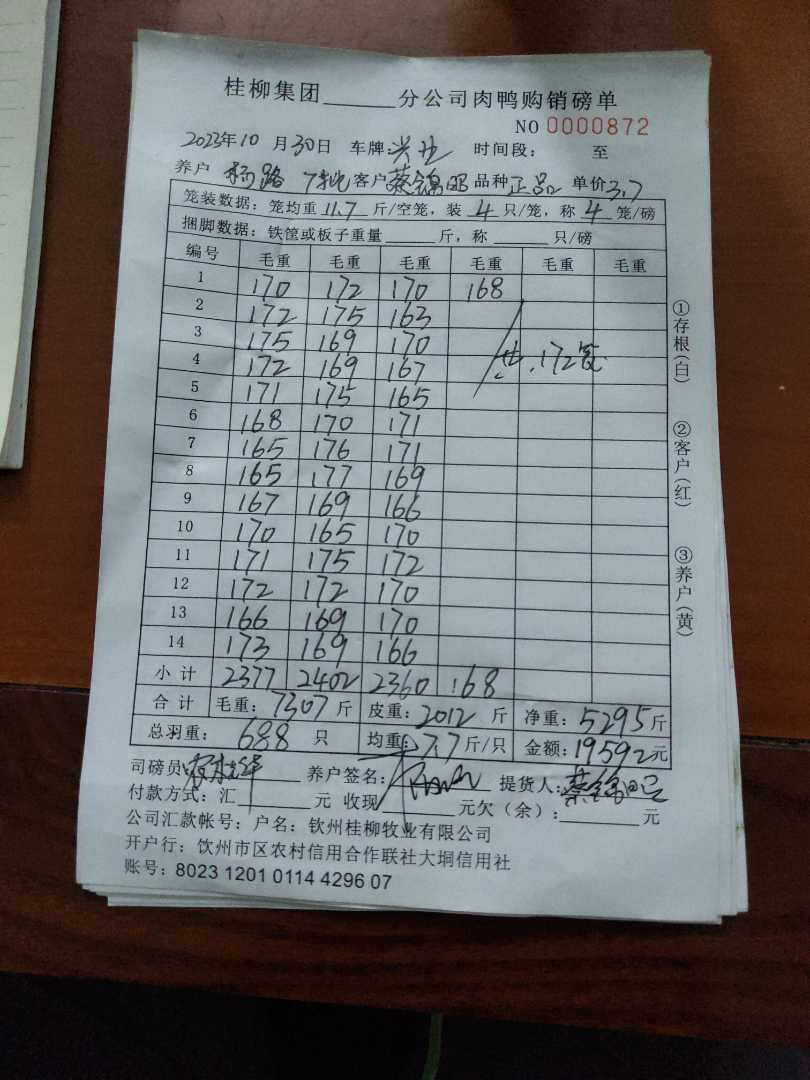 桂柳集团______分公司肉鸭购销磅单
NO 0000872
2023年10月30日 车牌:兴业 时间段: 至
养户 杨路 7批 客户 蔡锦昭 品种 正品 单价3.7
笼装数据:笼均重 11.7 斤/空笼,装 4 只/笼,称 4 笼/磅
捆脚数据:铁筐或板子重量______斤,称______只/磅
编号 毛重 毛重 毛重 毛重 毛重 毛重
1 170 172 170 168
2 172 175 163
3 175 169 170
4 172 169 167 共172笼
5 171 175 165
6 168 170 171
7 165 176 171
8 165 177 169
9 167 169 166
10 170 165 170
11 171 175 172
12 172 172 170
13 166 169 170
14 173 169 166
小计 2377 2402 2360 168
合计 毛重:7307斤 皮重:2012斤 净重:5295斤
总羽重: 688 只 均重:7.7斤/只 金额:19592元
司磅员: 养户签名: 提货人:蔡锦昭
付款方式:汇______元 收现______元欠(余):______元
公司汇款帐号:户名:钦州桂柳牧业有限公司
开户行:钦州市区农村信用合作联社大垌信用社
账号:8023 1201 0114 4296 07
①存根(白)
②客户(红)
③养户(黄)